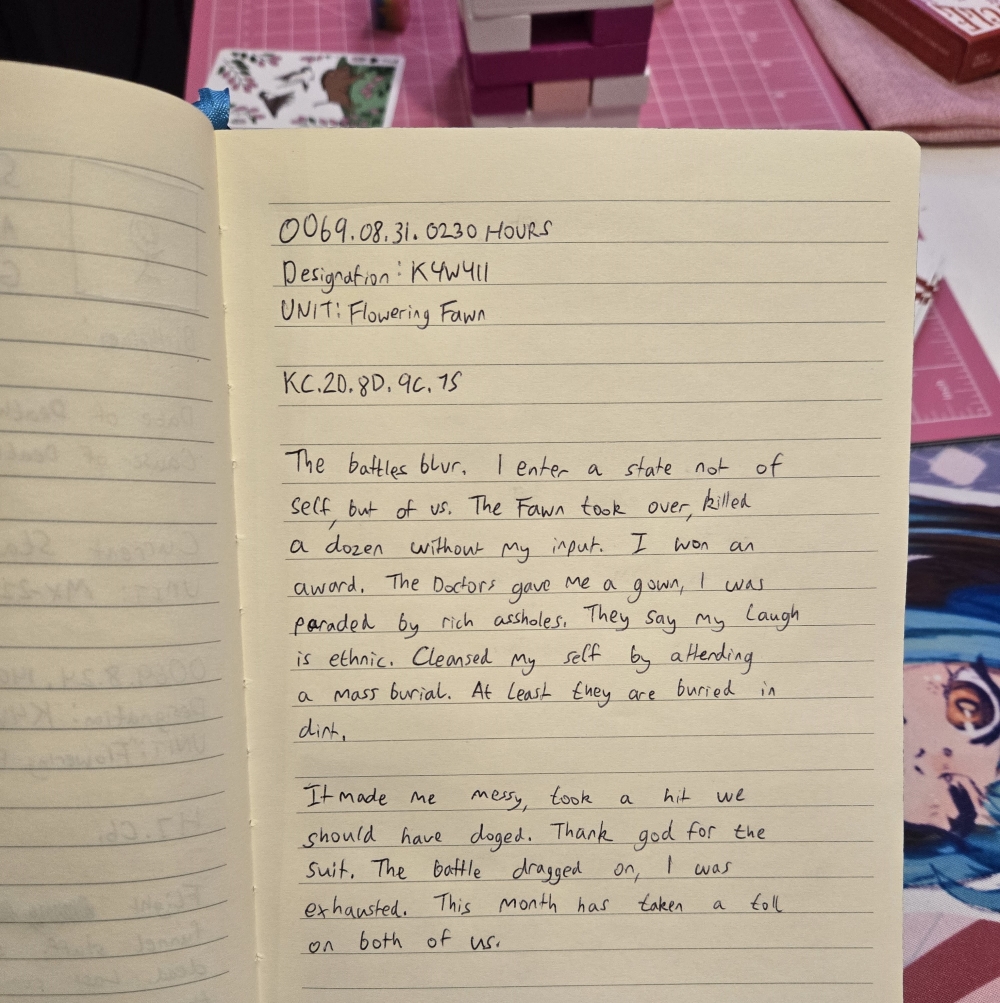 0069.08.31.0230 HOURS
Designation: K4W411
UNIT: Flowering Fawn
KC.2D.8D.9C.7S
The battles blur. I enter a state not of
self, but of us. The Fawn took over, killed
a dozen without my input. I won an
award. The Doctors gave me a gown, I was
paraded by rich assholes. They say my laugh
is ethnic. Cleansed my self by attending
a mass burial. At least they are buried in
dirt.
It made me messy, took a hit we
should have doged. Thank god for the
suit. The battle dragged on, I was
exhausted. This month has taken a toll
on both of us.